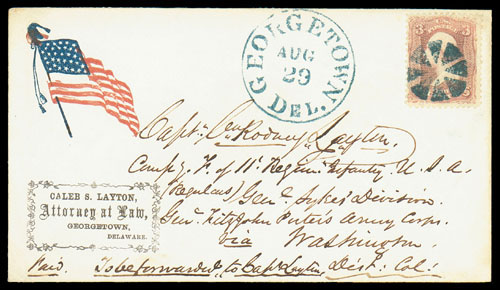 GEORGETOWN, DEL.
AUG
29
3 3
Capt. Cas. Rodney Layton,
Comp'y. F. of 11th Regim't Infantry, U.S.A.
(Regulars) Gen'l Sykes' Division
Gen. Fitz John Porter's Army Corps.
via Washington
Dist: Col:
CALEB S. LAYTON,
Attorney at Law,
GEORGETOWN,
DELAWARE.
Paid. To be forwarded, to Capt. Layton